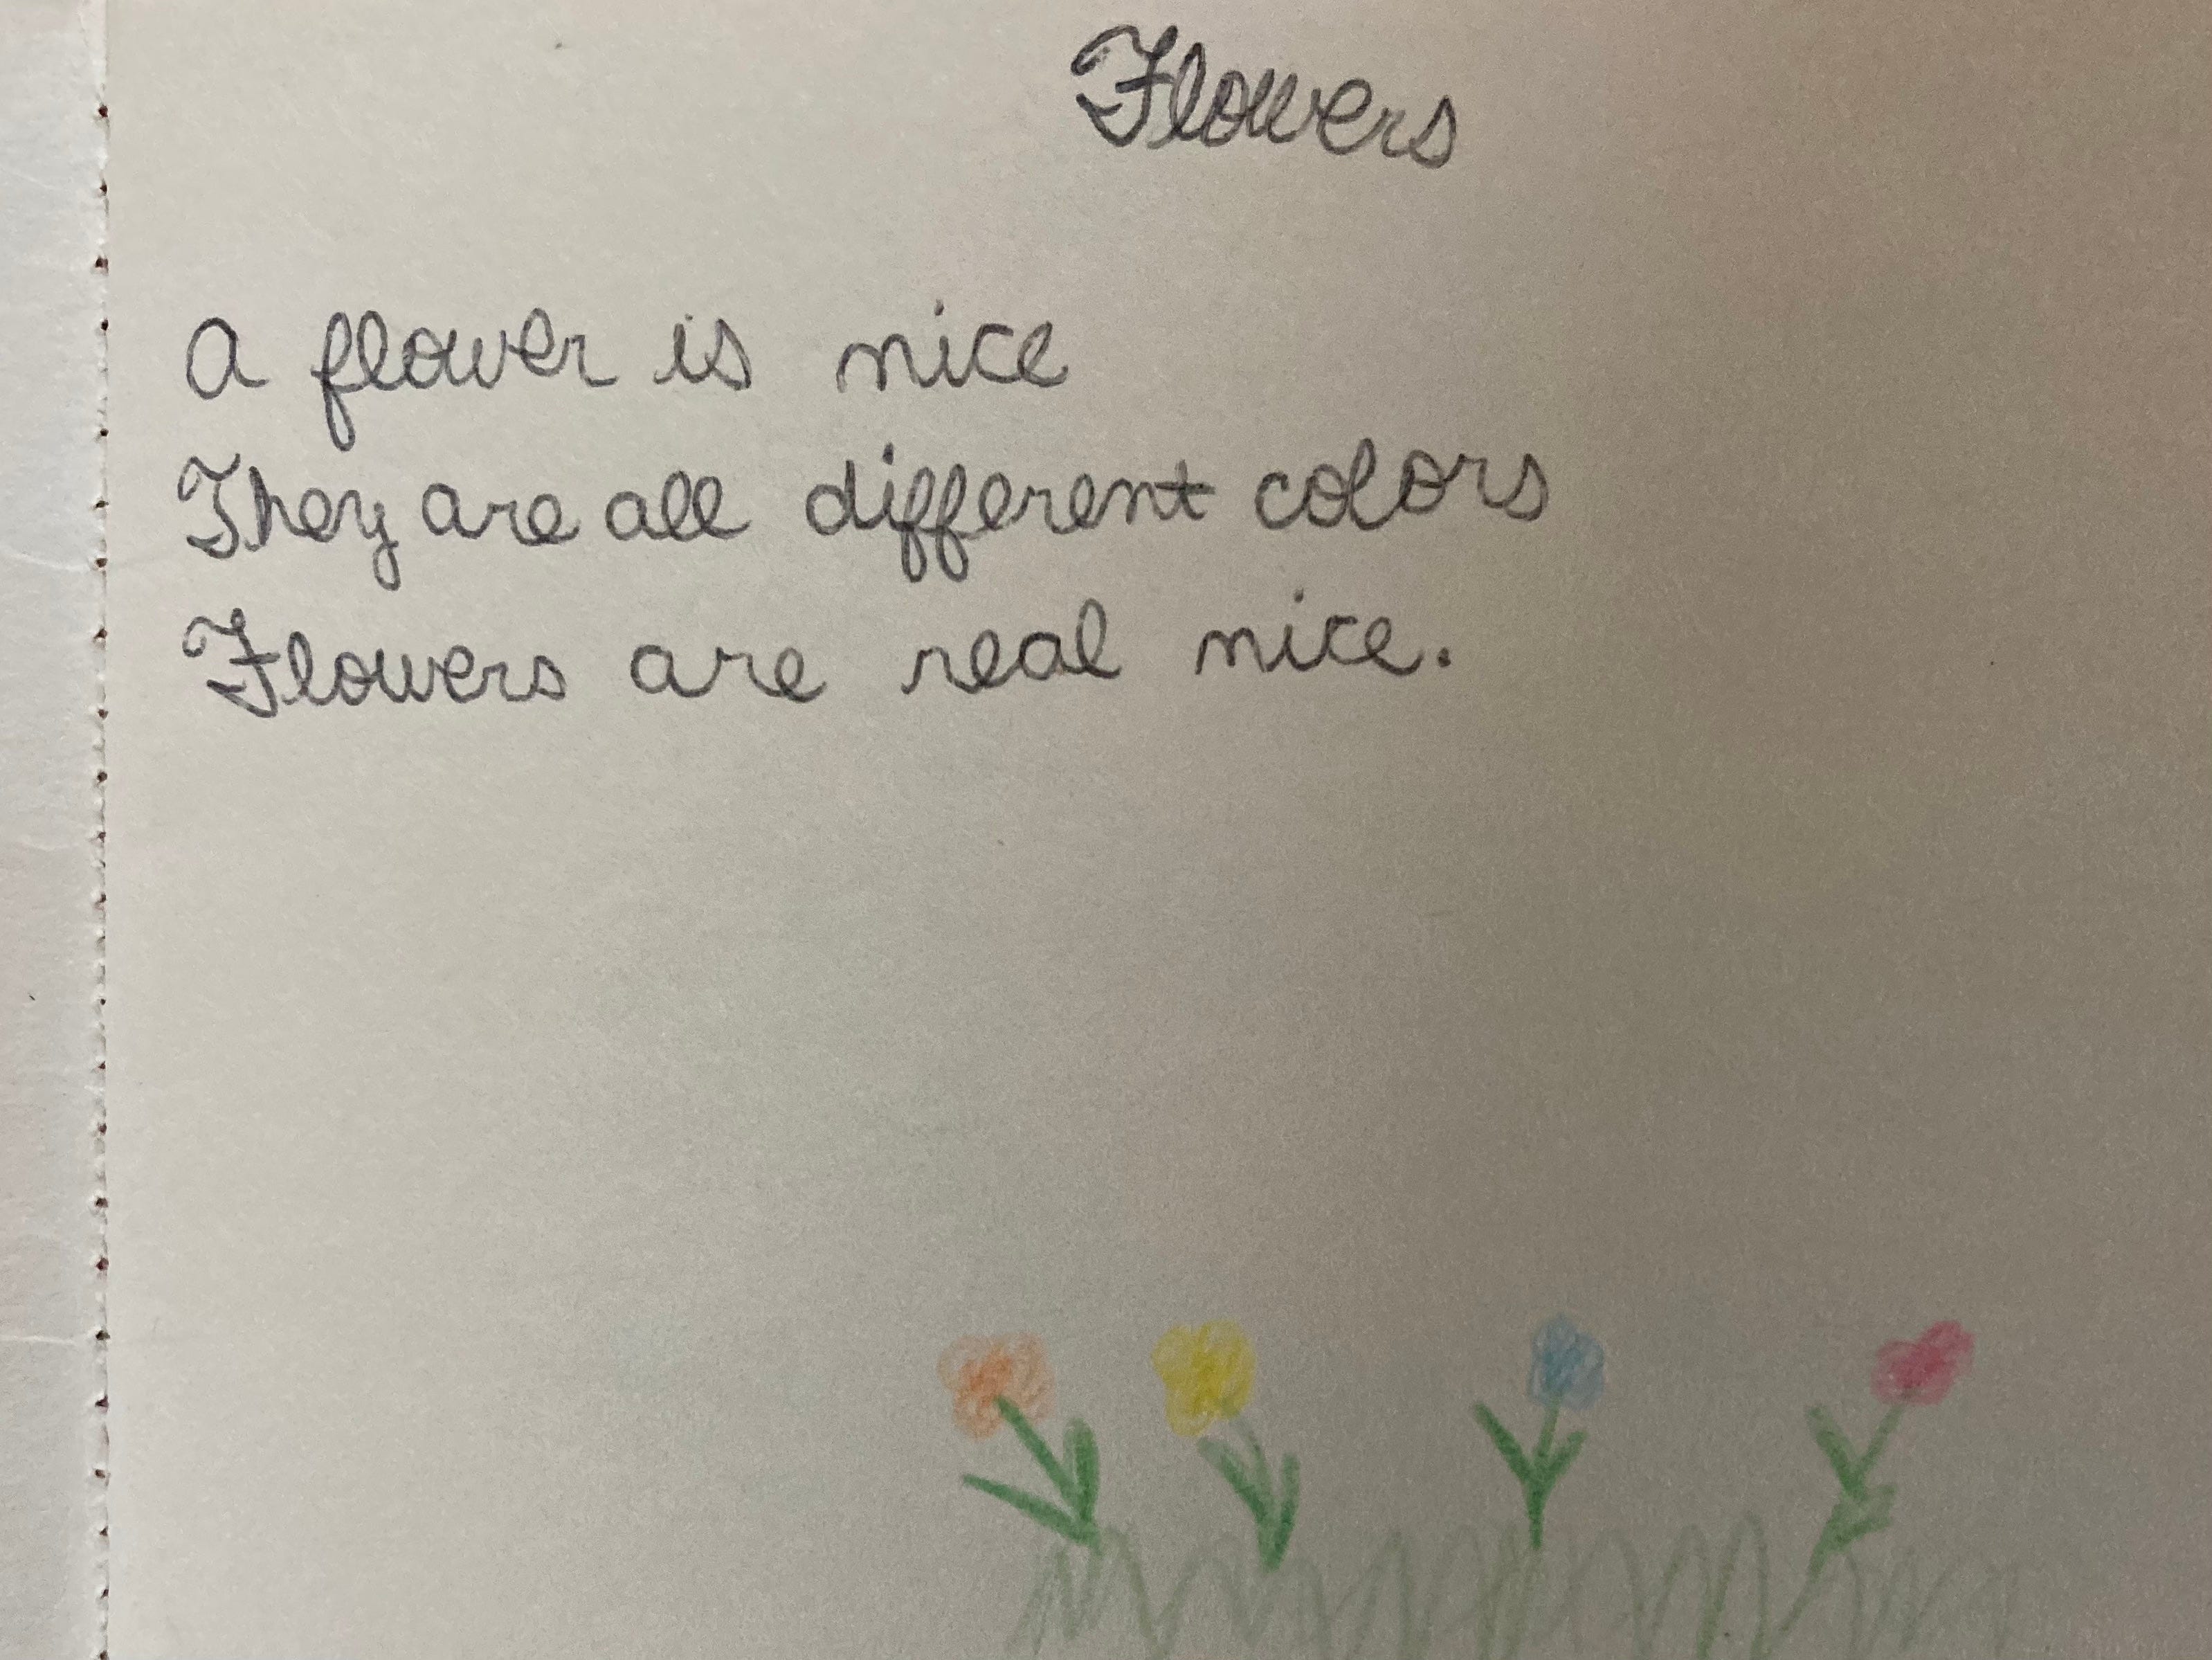 Flowers
A flower is nice
They are all different colors
Flowers are real nice.